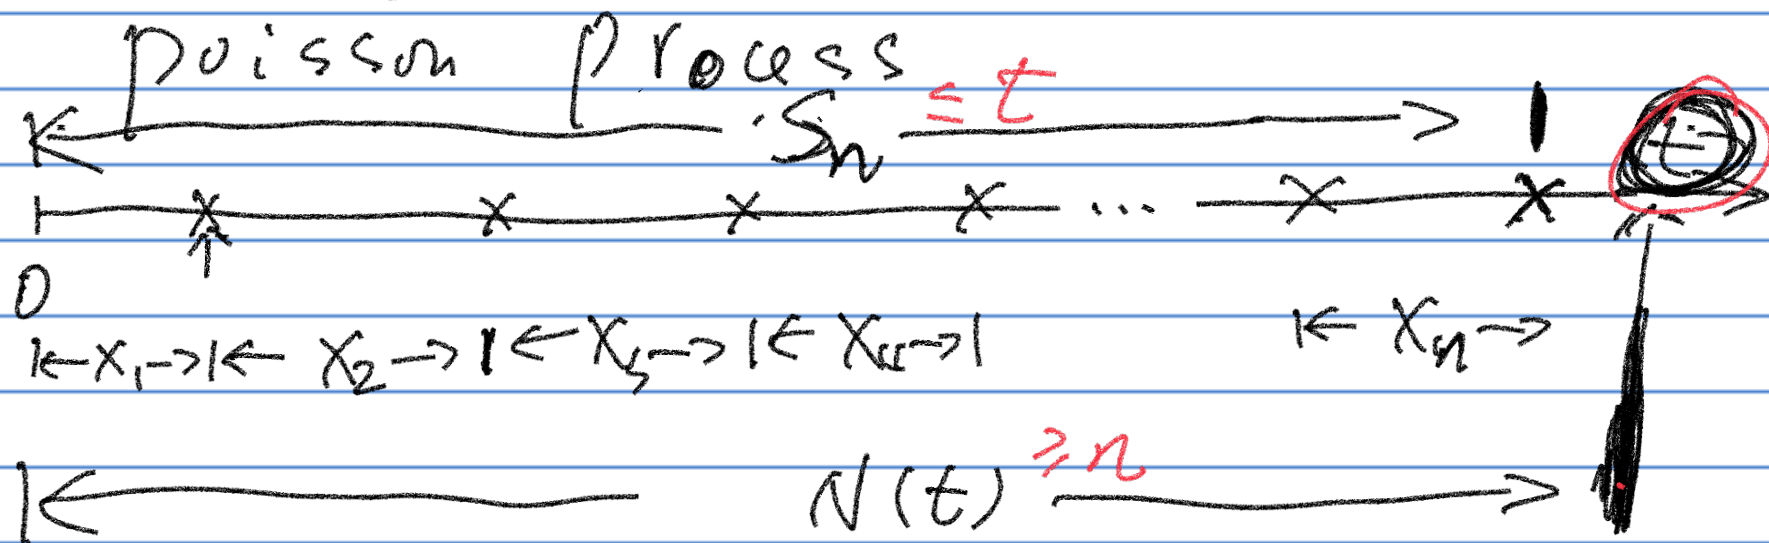 Poisson Process
Sn ≤ t
t
...
0
X₁ X₂ X₃ X₄ Xn
N(t) ≥ n